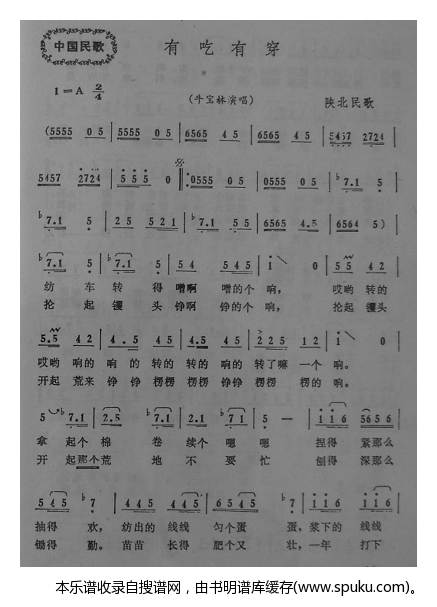 中国民歌
有吃有穿
1=A 2/4
(牛宝林演唱) 陕北民歌
(5555 05 | 5555 05 | 6565 45 | 6565 45 | 5457 2724 |
5457 2724 | 555 0 0555 05 | 0555 05 | ♭7.1 5 |
♭7.1 5 | 25 521 | ♭7.1 55 | 6565 4.5 | 6564 5) |
♭7.1 5 | ♭7.1 5 | 54 545 | i 0 | 55 42 |
纺车转得嗡啊嗡的个响，哎哟转的
抡起镢头铮啊铮的个响，抡起镢头
5.5 42 | 4.5 45 | 45 45 | 225 12 | i 0 |
哎哟响的响的转的转的响的转了嘛一个响。
开起荒来铮铮楞楞铮铮楞楞楞的响。
5 ♭7.1 | 2.5 ♭7.1 | ♭7.1 2.1 | ♭71 5 | — | i i6 5656 |
拿起个棉卷续个嗯嗯捏得紧那么
开起那个荒地不要忙刨得深那么
545 ♭7 | 445 445 | 545 ♭7 | ♭7 i i6 | i i6
抽得欢，纺出的线线匀个蛋蛋，浆下的线线
锄得勤。苗苗长得肥个又壮，一年打下
本乐谱收录自搜谱网，由书明谱库缓存(www.spuku.com)。